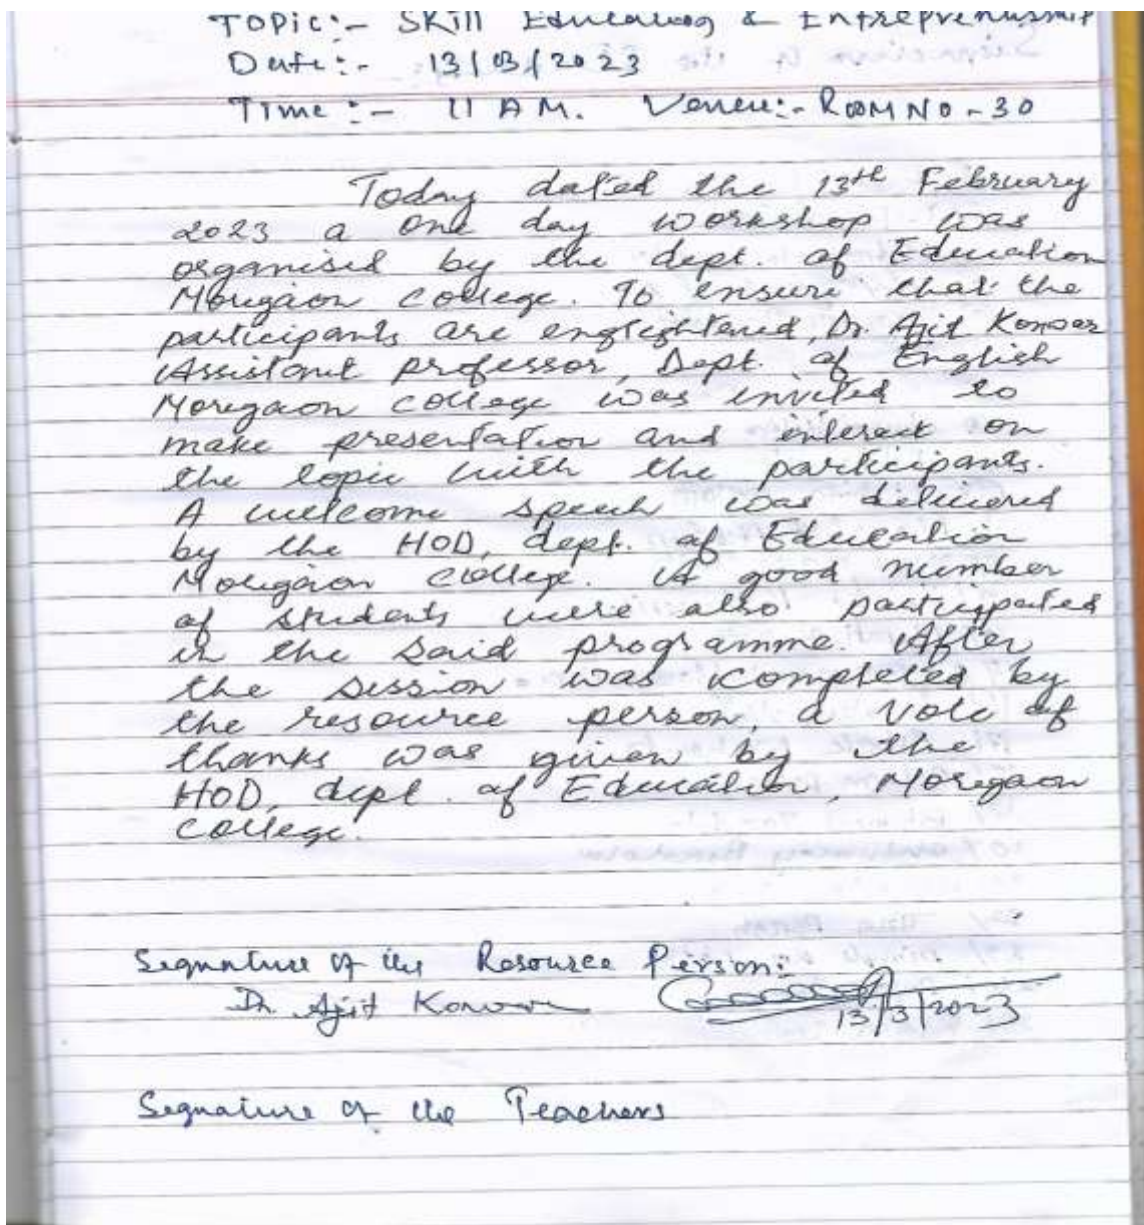 Topic:- Skill Educating & Entreprenurship
Date:- 13/03/2023
Time:- 11 AM. Venue:- Room No-30
Today dated the 13th February
2023 a one day workshop was
organised by the dept. of Education
Morigaon College. To ensure that the
participants are englightened, Dr. Ajit Konwar
Assistant professor, Dept. of English
Morigaon College was invited to
make presentation and interact on
the topic with the participants.
A welcome speech was delivered
by the HOD, dept. of Education
Morigaon College. A good number
of students were also participated
in the said programme. After
the session was completed by
the resource person, a vote of
thanks was given by the
HOD, dept. of Education, Morigaon
College.
Signature of the Resource Person:
Dr Ajit Konwar
13/3/2023
Signature of the Teachers